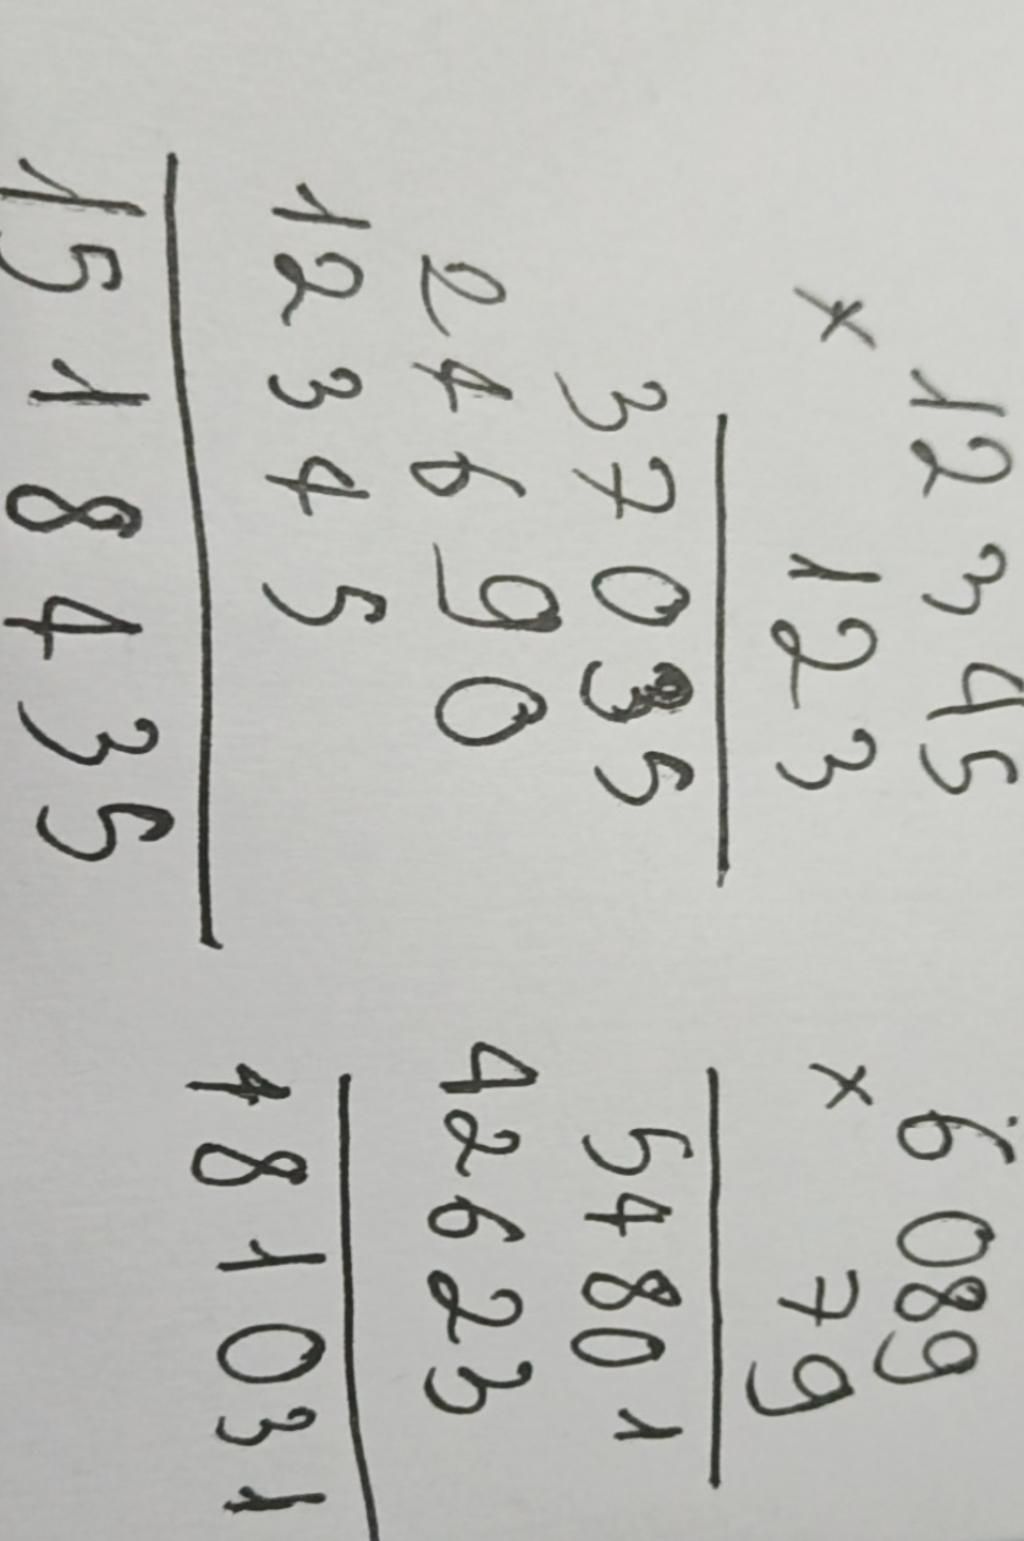 12345
× 123
37035
24690
12345
1518435
6089
× 79
54801
42623
481031